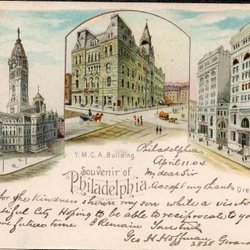 Y.M.C.A. Building.
Souvenir of
Philadelphia.
Dre
Philadelphia
April 11 04
My dear Sir
accept my thanks
for the kindness shown my son while a visit
ful City Hoping to be able to reciprocate
future time I Remain Yours truly
Geo H Hoffman
2825